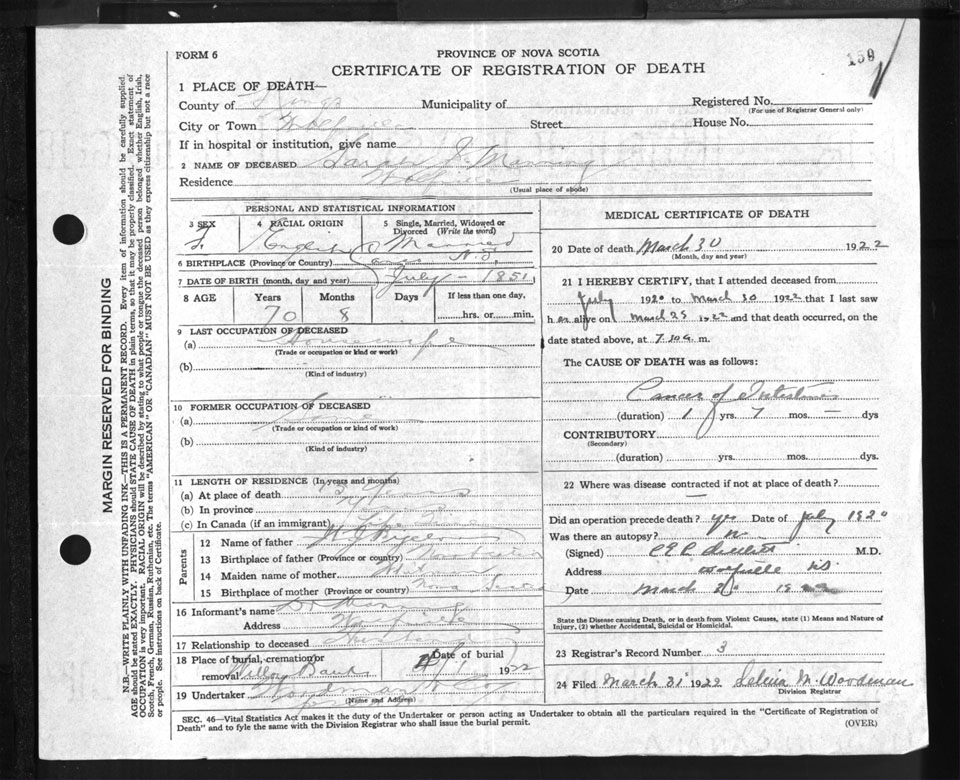 159
FORM 6
PROVINCE OF NOVA SCOTIA
CERTIFICATE OF REGISTRATION OF DEATH
1 PLACE OF DEATH—
County of Kings Municipality of Registered No.
(For use of Registrar General only)
City or Town Wolfville Street House No.
If in hospital or institution, give name
2 NAME OF DECEASED J. Manning
Residence Wolfville
(Usual place of abode)
PERSONAL AND STATISTICAL INFORMATION
3 SEX 4 RACIAL ORIGIN 5 Single, Married, Widowed or Divorced (Write the word)
F. English Married
6 BIRTHPLACE (Province or Country) N.S.
7 DATE OF BIRTH (month, day and year) July – 1851
8 AGE Years Months Days If less than one day,
70 8 hrs. or min.
9 LAST OCCUPATION OF DECEASED
(a) Housewife
(Trade or occupation or kind or work)
(b)
(Kind of industry)
10 FORMER OCCUPATION OF DECEASED
(a) Same
(Trade or occupation or kind of work)
(b)
(Kind of industry)
11 LENGTH OF RESIDENCE (In years and months)
(a) At place of death years
(b) In province
(c) In Canada (if an immigrant)
Parents
12 Name of father
13 Birthplace of father (Province or country)
14 Maiden name of mother
15 Birthplace of mother (Province or country) Nova Scotia
16 Informant's name Manning
Address Wolfville
17 Relationship to deceased Husband
18 Place of burial, cremation or removal Date of burial
1922
19 Undertaker Woodman & Co
(Name and Address)
MEDICAL CERTIFICATE OF DEATH
20 Date of death March 30 1922
(Month, day and year)
21 I HEREBY CERTIFY, that I attended deceased from
July 1920 to March 30 1922 that I last saw
h er alive on March 25 1922 and that death occurred, on the
date stated above, at m.
The CAUSE OF DEATH was as follows:
Cancer of Intestines
(duration) 1 yrs. 7 mos. – dys
CONTRIBUTORY
(Secondary)
(duration) yrs. mos. dys.
22 Where was disease contracted if not at place of death?
—
Did an operation precede death? yes Date of July 1920
Was there an autopsy? no
(Signed) M.D.
Address Wolfville NS.
Date March 19
State the Disease causing Death, or in death from Violent Causes, state (1) Means and Nature of
Injury, (2) whether Accidental, Suicidal or Homicidal.
23 Registrar's Record Number 3
24 Filed March 31 1922 M. Woodman
Division Registrar
SEC. 46—Vital Statistics Act makes it the duty of the Undertaker or person acting as Undertaker to obtain all the particulars required in the "Certificate of Registration of
Death" and to fyle the same with the Division Registrar who shall issue the burial permit.
(OVER)
MARGIN RESERVED FOR BINDING
N.B.—WRITE PLAINLY WITH UNFADING INK—THIS IS A PERMANENT RECORD. Every item of information should be carefully supplied.
AGE should be stated EXACTLY. PHYSICIANS should STATE CAUSE OF DEATH in plain terms, so that it may be properly classified. Exact statement of
OCCUPATION is very important. RACIAL ORIGIN will be described by stating to what people or tongue the deceased person belonged, whether English, Irish,
Scotch, French, German, Russian, Ruthenian, etc. The terms "AMERICAN" OR "CANADIAN" MUST NOT BE USED as they express citizenship but not a race
or people. See instructions on back of Certificate.